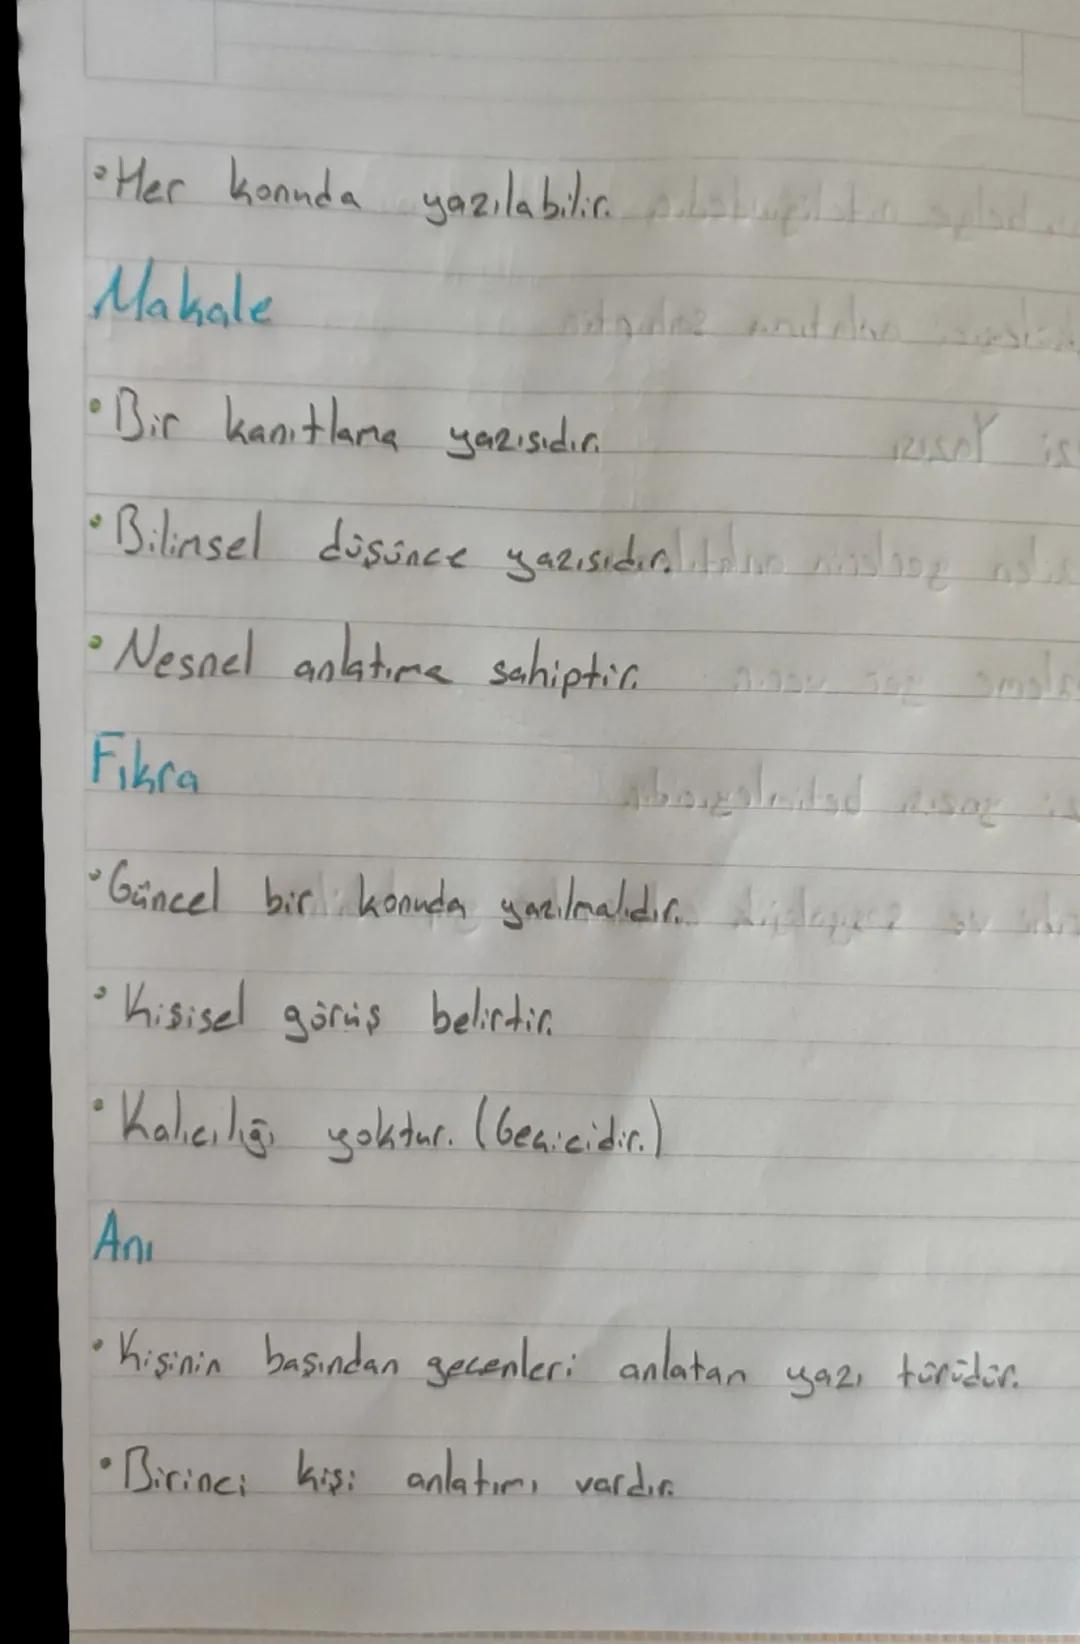 • Her konuda yazılabilir.
Makale
• Bir kanıtlama yazısıdır.
• Bilimsel düşünce yazısıdır.
• Nesnel anlatıma sahiptir.
Fıkra
• Güncel bir konuda yazılmalıdır.
• Kişisel görüş belirtir.
• Kalıcılığı yoktur. (Geçicidir.)
Anı
• Kişinin başından geçenleri anlatan yazı türüdür.
• Birinci kişi anlatımı vardır.